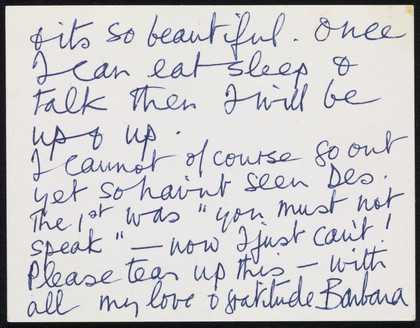 & its so beautiful. Once
I can eat sleep &
talk then I will be
up & up.
I cannot of course go out
yet so havnt seen Des.
The 1st was "you must not
speak" — now I just can't!
Please tear up this — with
all my love & gratitude Barbara